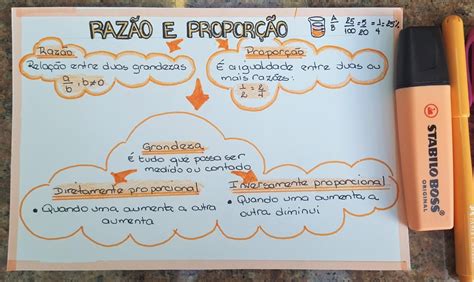 RAZÃO E PROPORÇÃO
A
B
25 = 5 = 1 = 25%
100 20 4
Razão
Relação entre duas grandezas
a
b , b≠0
Proporção
É a igualdade entre duas ou
mais razões:
1 = 2
2 4
Grandeza
É tudo que possa ser
medido ou contado
Diretamente proporcional
• Quando uma aumenta a outra
aumenta
Inversamente proporcional
• Quando uma aumenta a
outra diminui
STABILO BOSS
ORIGINAL